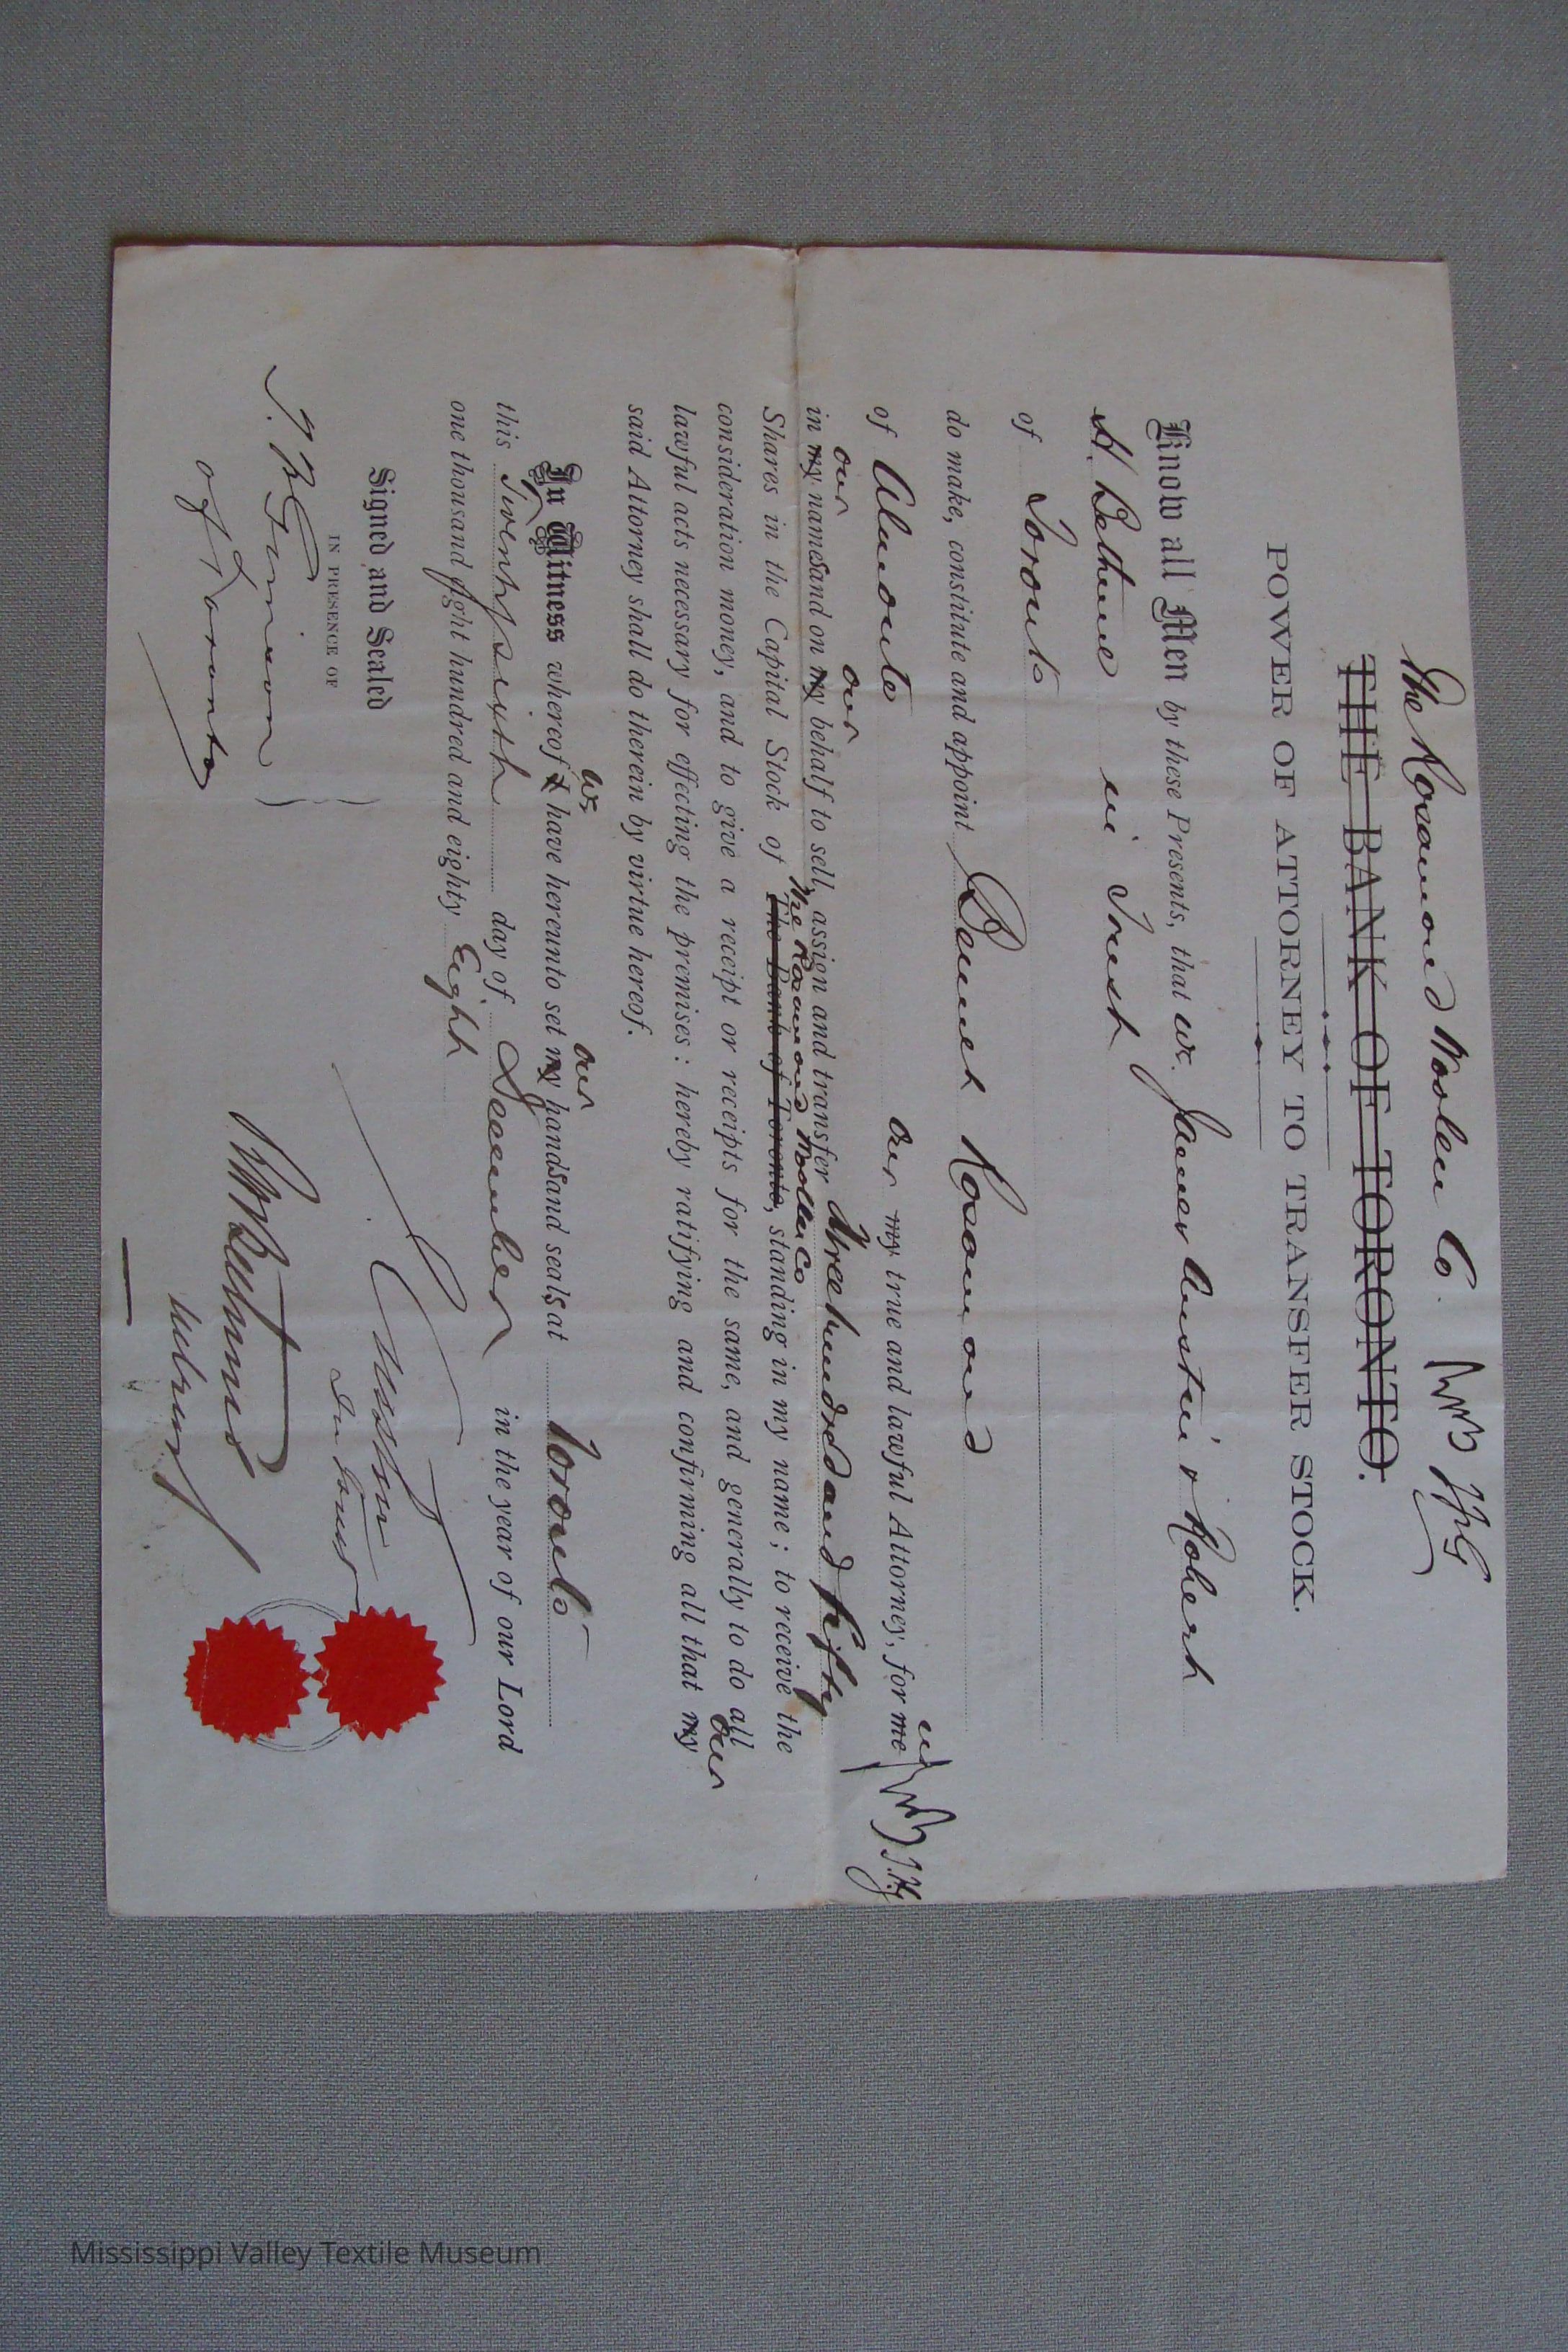 The Rosamond Woolen Co.
THE BANK OF TORONTO.
POWER OF ATTORNEY TO TRANSFER STOCK.
Know all Men by these Presents, that we James Austin & Robert
H Bethune in Trust
of Toronto
do make, constitute and appoint Bennet Rosamond
of Almonte our my true and lawful Attorney, for me us
in my our names and on my our behalf to sell, assign and transfer Three hundred and fifty
Shares in the Capital Stock of The Bank of Toronto, The Rosamond Woolen Co standing in my name; to receive the
consideration money, and to give a receipt or receipts for the same, and generally to do all
lawful acts necessary for effecting the premises: hereby ratifying and confirming all that my our
said Attorney shall do therein by virtue hereof.
In Witness whereof I we have hereunto set my our hands and seals at Toronto
this Twenty sixth day of December in the year of our Lord
one thousand eight hundred and eighty Eight
Signed and Sealed
IN PRESENCE OF
of Toronto
J Austin
In Trust
R H Bethune
in trust
Mississippi Valley Textile Museum